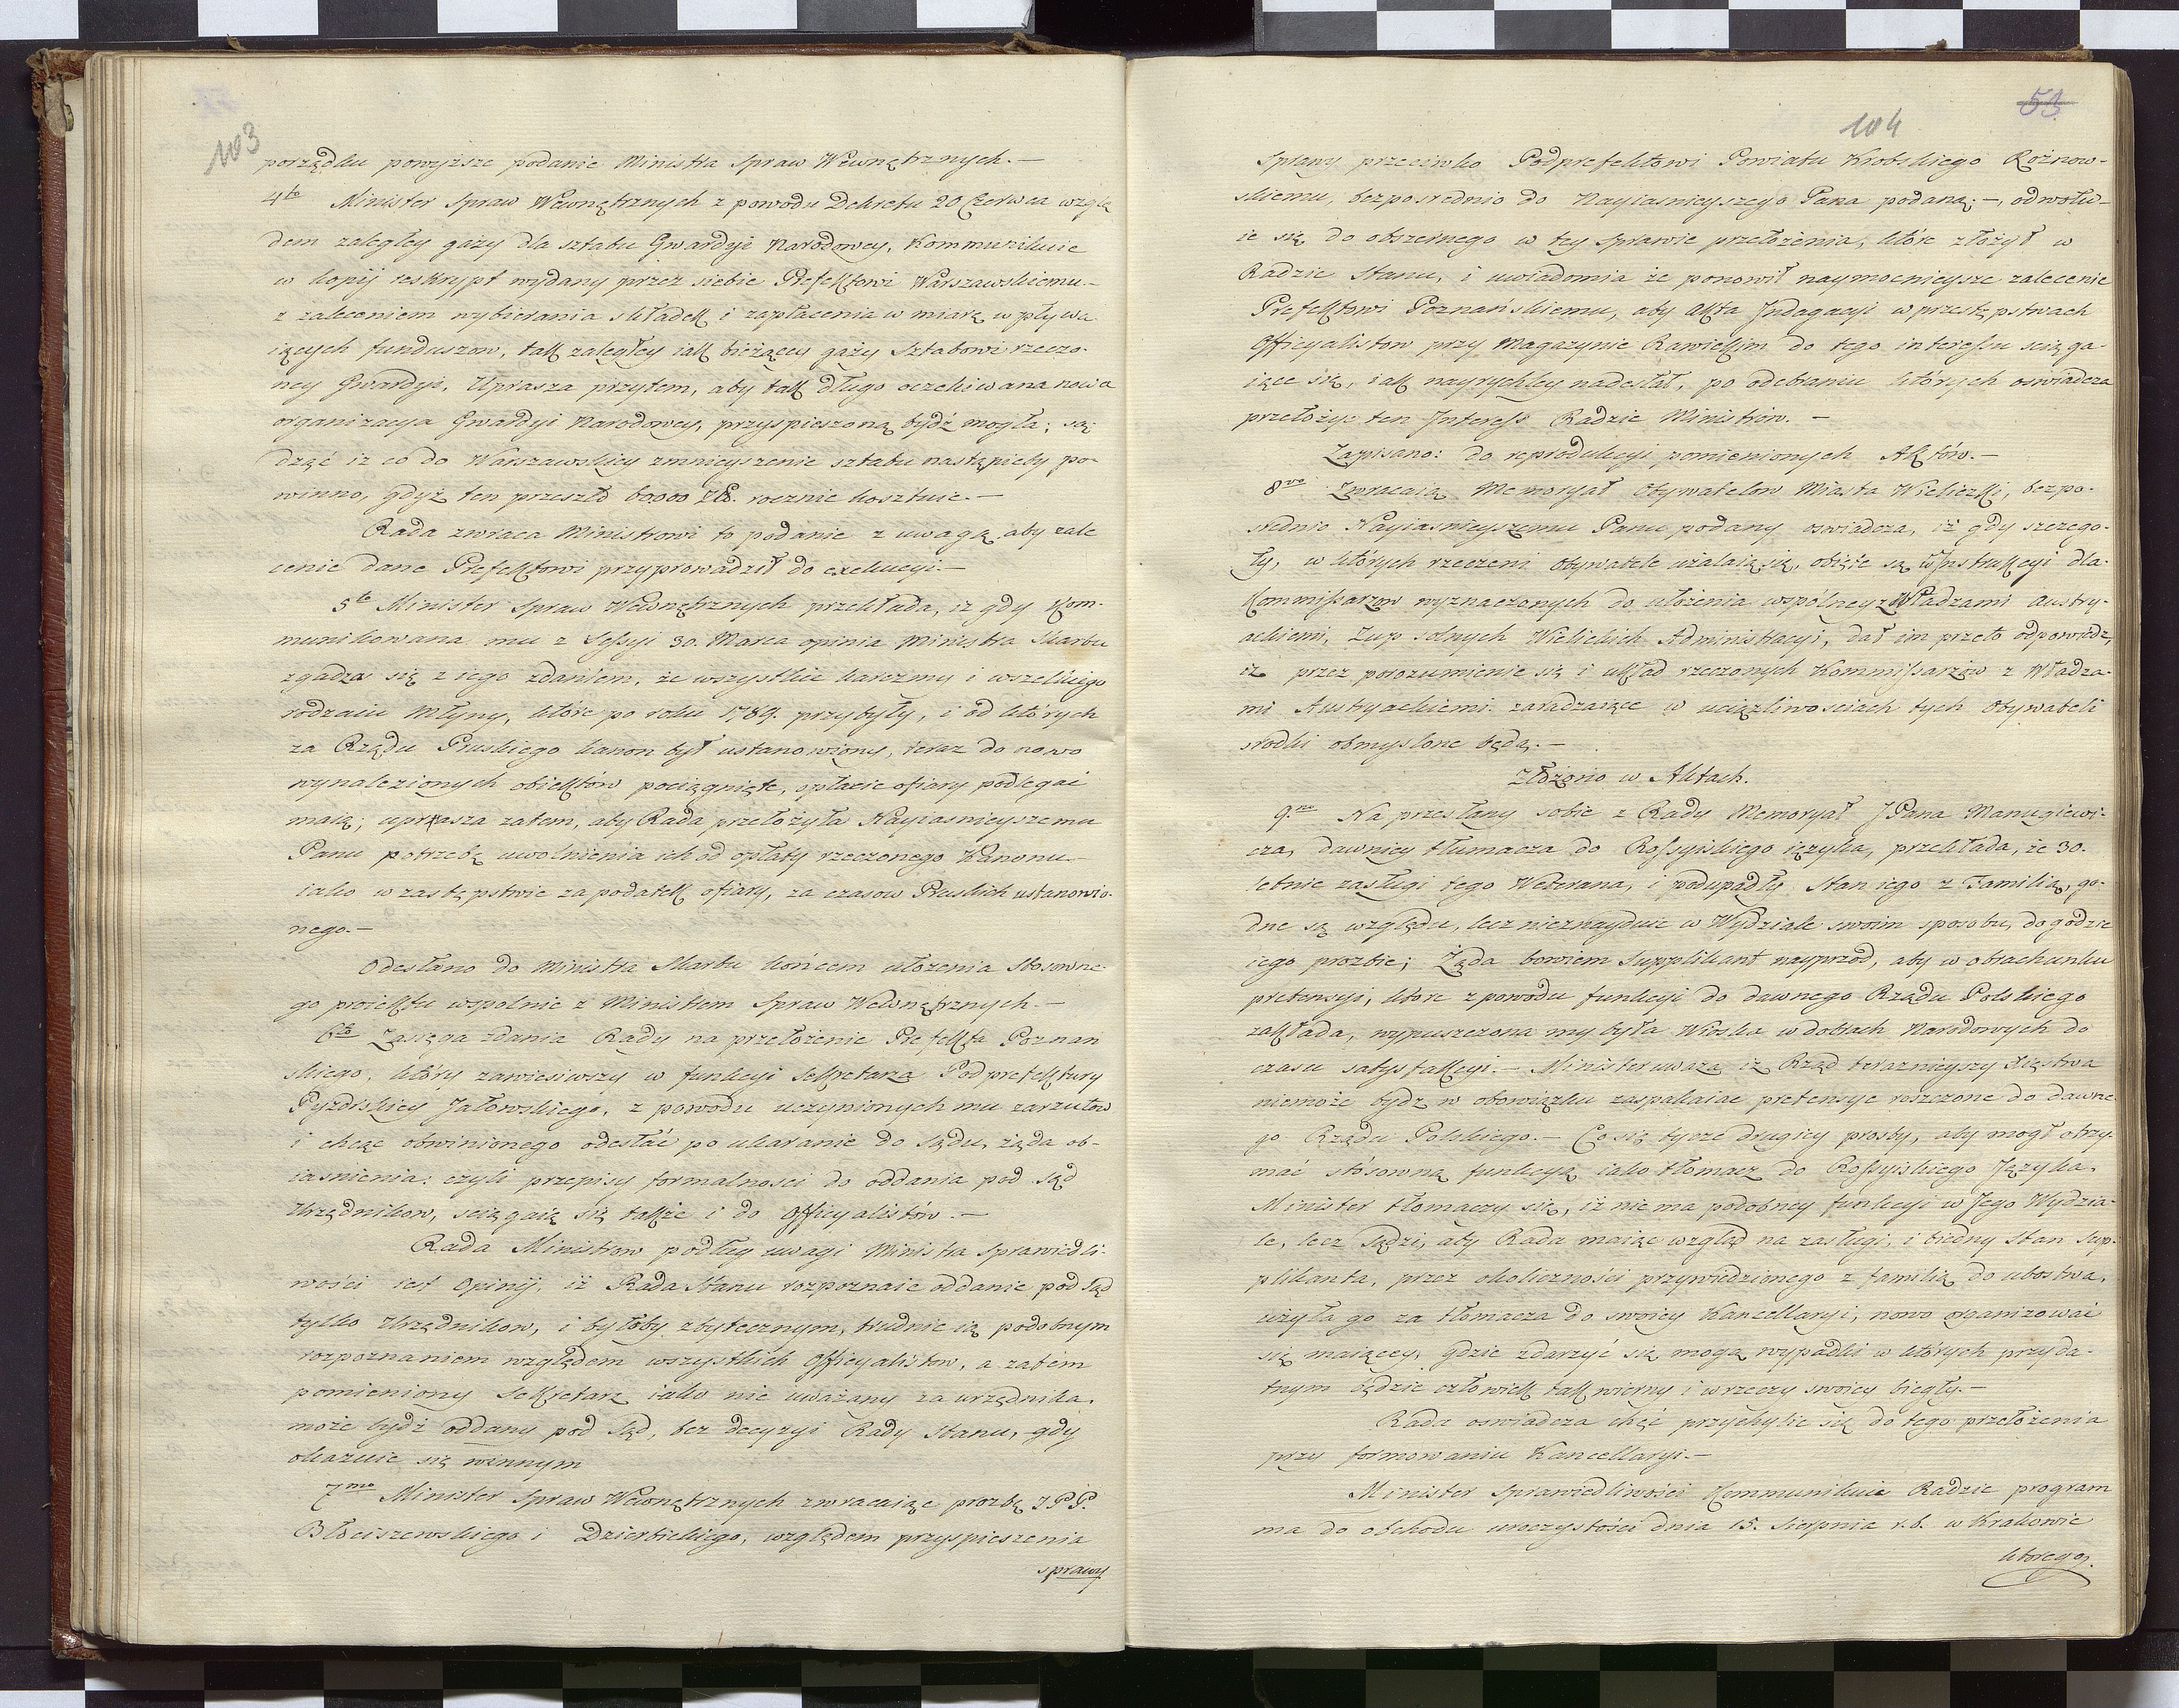 103
porządku powyższe podanie Ministra Spraw Wewnętrznych.—
4to Minister Spraw Wewnętrznych z powodu Dekretu 20 Czerwca wzglę
dem zaległey gaży dla sztabu Gwardyi Narodowey, Kommunikuie
w kopij reskrypt wydany przez siebie Prefektowi Warszawskiemu.—
z zaleceniem wybierania składek i zapłacenia w miarę wpływa
iących funduszow, tak zaległey iak bieżącey gaży Sztabowi rzeczo-
ney Gwardyi. Uprasza przytem, aby tak długo oczekiwana nowa
organizacya Gwardyi Narodowey, przyspieszoną bydź mogła; są-
dząc iż co do Warszawskiey zmnieyszenie sztabu nastąpićby po-
winno, gdyż ten przeszło 60000 Zł. rocznie kosztuie.—
Rada zwraca Ministrowi to podanie z uwagą, aby zale
cenie dane Prefektowi przyprowadził do exekucyi.—
5to Minister Spraw Wewnętrznych przekłada, iż gdy kom-
munikowana mu z Sessyi 30. Marca opinia Ministra Skarbu
zgadza się z iego zdaniem, że wszystkie karczmy i wszelkiego
rodzaiu Młyny, które po roku 1789. przybyły, i od których
za Rządu Pruskiego kanon był ustanowiony, teraz do nowo
wynalezionych obiektów pociągnięte, opłacie ofiary podlegać
maią; uprasza zatem, aby Rada przełożyła Nayiasnieyszemu
Panu potrzebę uwolnienia ich od opłaty rzeczonego Kanonu
iako w zastępstwie za podatek ofiary, za czasow Pruskich ustanowio-
nego.—
Odesłano do Ministra Skarbu końcem ułożenia stosowne-
go proiektu wspolnie z Ministrem Spraw Wewnętrznych.—
6to Zasięga zdania Rady na przełożenie Prefekta Poznań
skiego, który zawiesiwszy w funkcyi Sekretarza Podprefektury
Pyzdrskiey Jałowskiego, z powodu uczynionych mu zarzutow
i chcąc obwinionego odesłać po ukaranie do Sądu, żąda ob-
iasnienia: czyli przepisy formalnosci do oddania pod Sąd
Urzędnikow, sciągaią się także i do Officyalistów.—
Rada Ministrow podług uwagi Ministra Sprawiedli-
wości iest Opinij, iż Rada Stanu rozpoznaie oddanie pod Sąd
tylko Urzędnikow, i byłoby zbytecznym, trudnic się podobnym
rozpoznaniem względem wszystkich Officyalistow, a zatém
pomieniony Sekretarz iako nie uważany za urzędnika,
może bydź oddany pod Sąd, bez decyzyi Rady Stanu, gdy
okazuie się winnym
7mo Minister Spraw Wewnętrznych zwracaiąc prozbę JPP.
Błociszewskiego i Dzierbickiego, względem przyspieszenia
sprawy
53
104
Sprawy przeciwko Podprefektowi Powiatu Krobskiego Rożnow-
skiemu, bezposrednio do Nayiasnieyszego Pana podaną;—, odwołu-
ie się do obszernego w tey sprawie przełożenia, które złożył w
Radzie Stanu, i uwiadomia że ponowił naymocnieysze zalecenie
Prefektowi Poznańskiemu, aby Akta Indagacyi w przestępstwach
Officyalistow przy Magazynie Rawickim do tego interessu sciąga-
iące się, iak nayrychley nadesłał, po odebraniu których oswiadcza
przełożyc ten Interess Radzie Ministrów.—
Zapisano: do reprodukcyi pomienionych Aktów.—
8vo Zwracaiąc Memoryał Obywatelow Miasta Wieliczki, bezpo-
srednio Nayiasnieyszemu Panu podany oswiadcza, iż gdy szczego-
ły, w których rzeczeni Obywatele użalaią się, obięte są w Instrukcyi dla
Kommissarzow wyznaczonych do ułożenia wspólney z Władzami Austry-
ackiemi, Żup solnych Wielickich Administracyi, dał im przeto odpowiedz,
iż przez porozumienie się i układ rzeczonych Kommissarzów z Władza-
mi Austryackiemi zaradzaiące w uciążliwosciach tych Obywateli
srodki obmyslone będą.—
Złożono w Aktach.
9no Na przesłany sobie z Rady Memoryał JPana Manugiewi-
cza, dawniey tłumacza do Rossyiskiego ięzyka, przekłada, że 30.
letnie zasługi tego Weterana, i podupadły stan iego z Familią, go-
dne są względu, lecz nieznayduie w Wydziale swoim sposobu, dogodzić
iego prozbie; Żąda bowiem Supplikant nayprzod, aby w obrachunku
pretensyi, ktore z powodu funkcyi do dawnego Rządu Polskiego
zakłada, wypuszczona mu była Wioska w dobrach Narodowych do
czasu satysfakcyi.— Minister uważa iż Rząd teraznieyszy Xięstwa
niemoże bydz w obowiązku zaspakaiac pretensye roszczone do dawne-
go Rządu Polskiego.— Co się tycze drugiey prosby, aby mogł otrzy-
mać stósowną funkcyą iako tłómacz do Rossyiskiego Języka,
Minister tłomaczy się, iż nie ma podobney funkcyi w Jego Wydzia-
le, lecz Sądzi, aby Rada maiąc wzgląd na zasługi, i biedny stan Sup-
plikanta, przez okoliczności przywiedzionego z familią do ubostwa,
użyła go za tłomacza do swoiey Kancellaryi, nowo organizować
się maiącey, gdzie zdarzyć się mogą wypadki w których przyda-
tnym będzie człowiek tak wierny i w rzeczy swoiey biegły.—
Rada oswiadcza chęć przychylic się do tego przełożenia
przy formowaniu Kancellaryi.—
Minister Sprawiedliwości Kommunikuie Radzie program
ma do obchodu uroczystości dnia 15. Sierpnia r.b. w Krakowie
ktorego